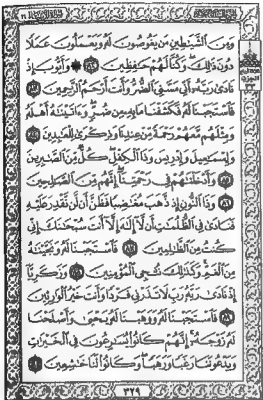 وَمِنَ ٱلشَّيَٰطِينِ مَن يَغُوصُونَ لَهُۥ وَيَعْمَلُونَ عَمَلًا
دُونَ ذَٰلِكَ ۖ وَكُنَّا لَهُمْ حَٰفِظِينَ ﴿٨٢﴾ ۞ وَأَيُّوبَ إِذْ
نَادَىٰ رَبَّهُۥٓ أَنِّي مَسَّنِيَ ٱلضُّرُّ وَأَنتَ أَرْحَمُ ٱلرَّٰحِمِينَ ﴿٨٣﴾
فَٱسْتَجَبْنَا لَهُۥ فَكَشَفْنَا مَا بِهِۦ مِن ضُرٍّ ۖ وَءَاتَيْنَٰهُ أَهْلَهُۥ
وَمِثْلَهُم مَّعَهُمْ رَحْمَةً مِّنْ عِندِنَا وَذِكْرَىٰ لِلْعَٰبِدِينَ ﴿٨٤﴾
وَإِسْمَٰعِيلَ وَإِدْرِيسَ وَذَا ٱلْكِفْلِ ۖ كُلٌّ مِّنَ ٱلصَّٰبِرِينَ
﴿٨٥﴾ وَأَدْخَلْنَٰهُمْ فِي رَحْمَتِنَآ ۖ إِنَّهُم مِّنَ ٱلصَّٰلِحِينَ
﴿٨٦﴾ وَذَا ٱلنُّونِ إِذ ذَّهَبَ مُغَٰضِبًا فَظَنَّ أَن لَّن نَّقْدِرَ عَلَيْهِ
فَنَادَىٰ فِي ٱلظُّلُمَٰتِ أَن لَّآ إِلَٰهَ إِلَّآ أَنتَ سُبْحَٰنَكَ إِنِّي
كُنتُ مِنَ ٱلظَّٰلِمِينَ ﴿٨٧﴾ فَٱسْتَجَبْنَا لَهُۥ وَنَجَّيْنَٰهُ
مِنَ ٱلْغَمِّ ۚ وَكَذَٰلِكَ نُۨجِي ٱلْمُؤْمِنِينَ ﴿٨٨﴾ وَزَكَرِيَّآ
إِذْ نَادَىٰ رَبَّهُۥ رَبِّ لَا تَذَرْنِي فَرْدًا وَأَنتَ خَيْرُ ٱلْوَٰرِثِينَ
﴿٨٩﴾ فَٱسْتَجَبْنَا لَهُۥ وَوَهَبْنَا لَهُۥ يَحْيَىٰ وَأَصْلَحْنَا
لَهُۥ زَوْجَهُۥٓ ۚ إِنَّهُمْ كَانُوا۟ يُسَٰرِعُونَ فِي ٱلْخَيْرَٰتِ
وَيَدْعُونَنَا رَغَبًا وَرَهَبًا ۖ وَكَانُوا۟ لَنَا خَٰشِعِينَ ﴿٩٠﴾
٣٢٩